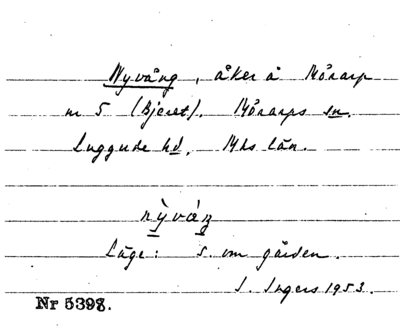 Nyvång, åker å Mörarp
nr 5 (Bjeret). Mörarps sn.
Luggude hd, Mhs län.
nỳváŋ
Läge: s. om gården.
I. Ingers 1953.
Nr 5398.